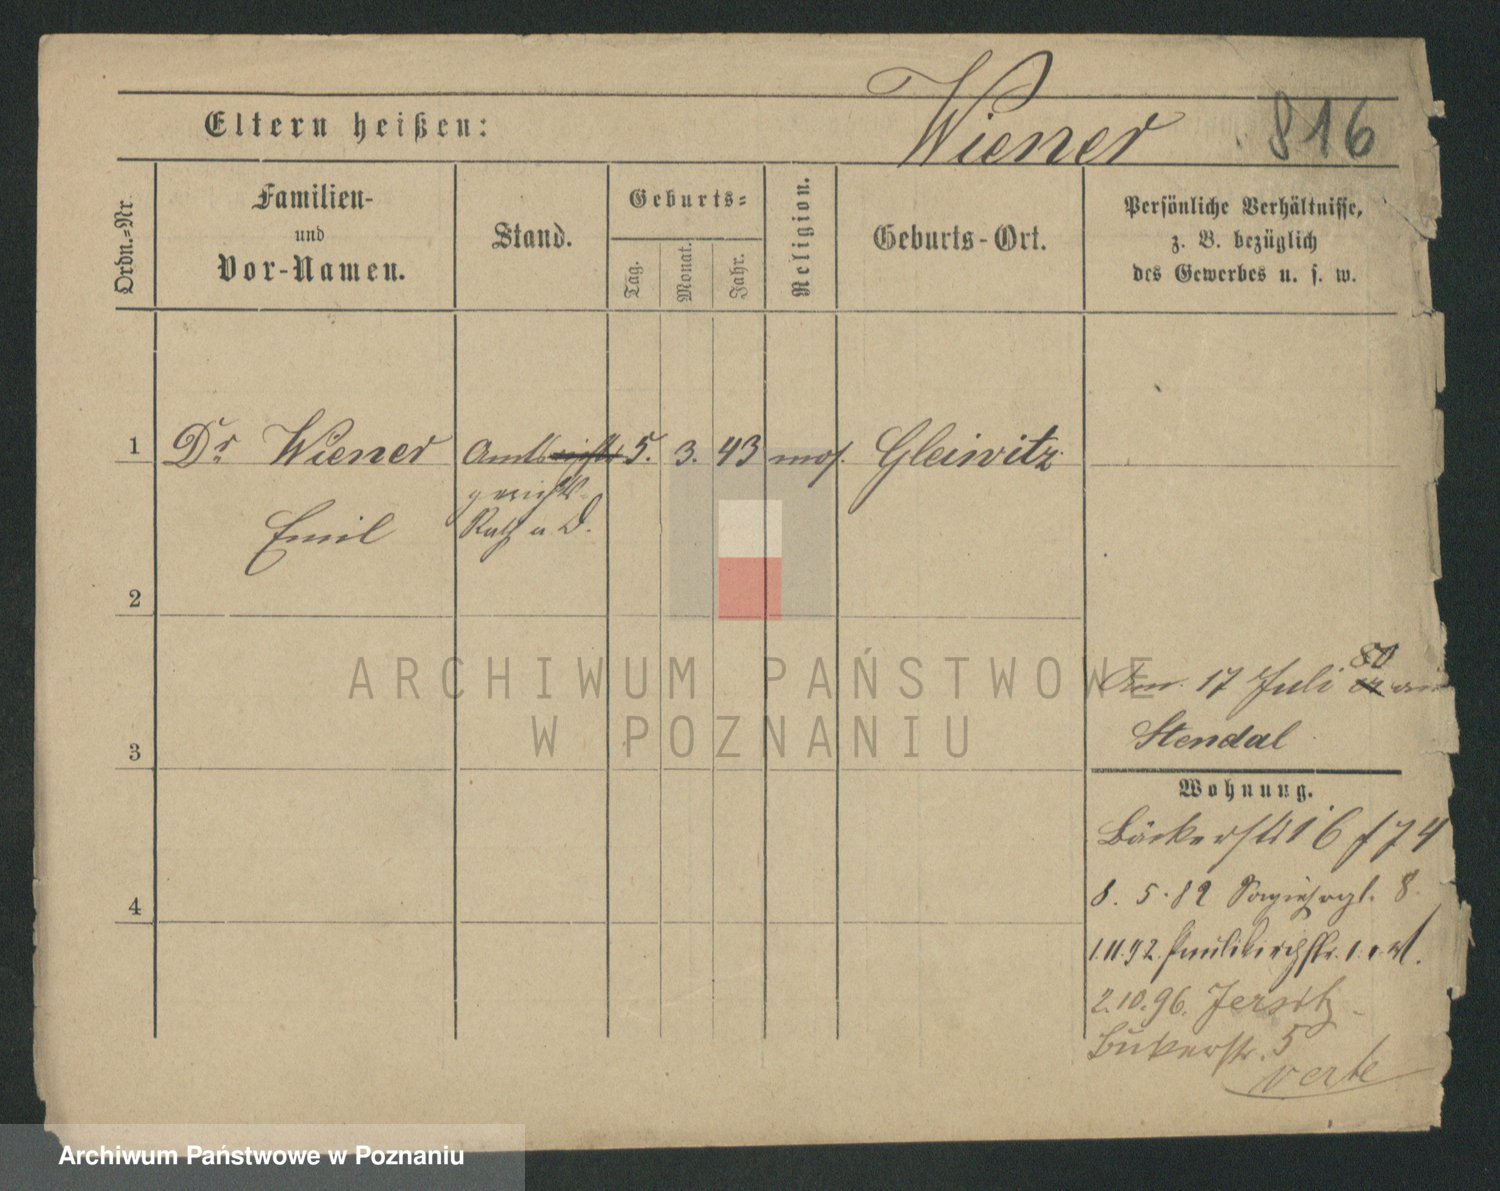 Wiener 816
Eltern heißen:
Ordn.-Nr.
Familien-
und
Vor-Namen.
Stand.
Geburts-
Tag.
Monat.
Jahr.
Religion.
Geburts-Ort.
Persönliche Verhältnisse,
z. B. bezüglich
des Gewerbes u. s. w.
1 Dr. Wiener Amts 5. 3. 43 mos. Gleiwitz
gerichts-
Emil Rath a D.
2
ARCHIWUM PAŃSTWOWE
W POZNANIU
80
Am 17 Juli
Stendal
3
Wohnung.
Bäckerstr 16
8. 5. 82 8.
4
1.11.92.
2.10.96. Jersitz
Bukerstr. 5
verte
Archiwum Państwowe w Poznaniu